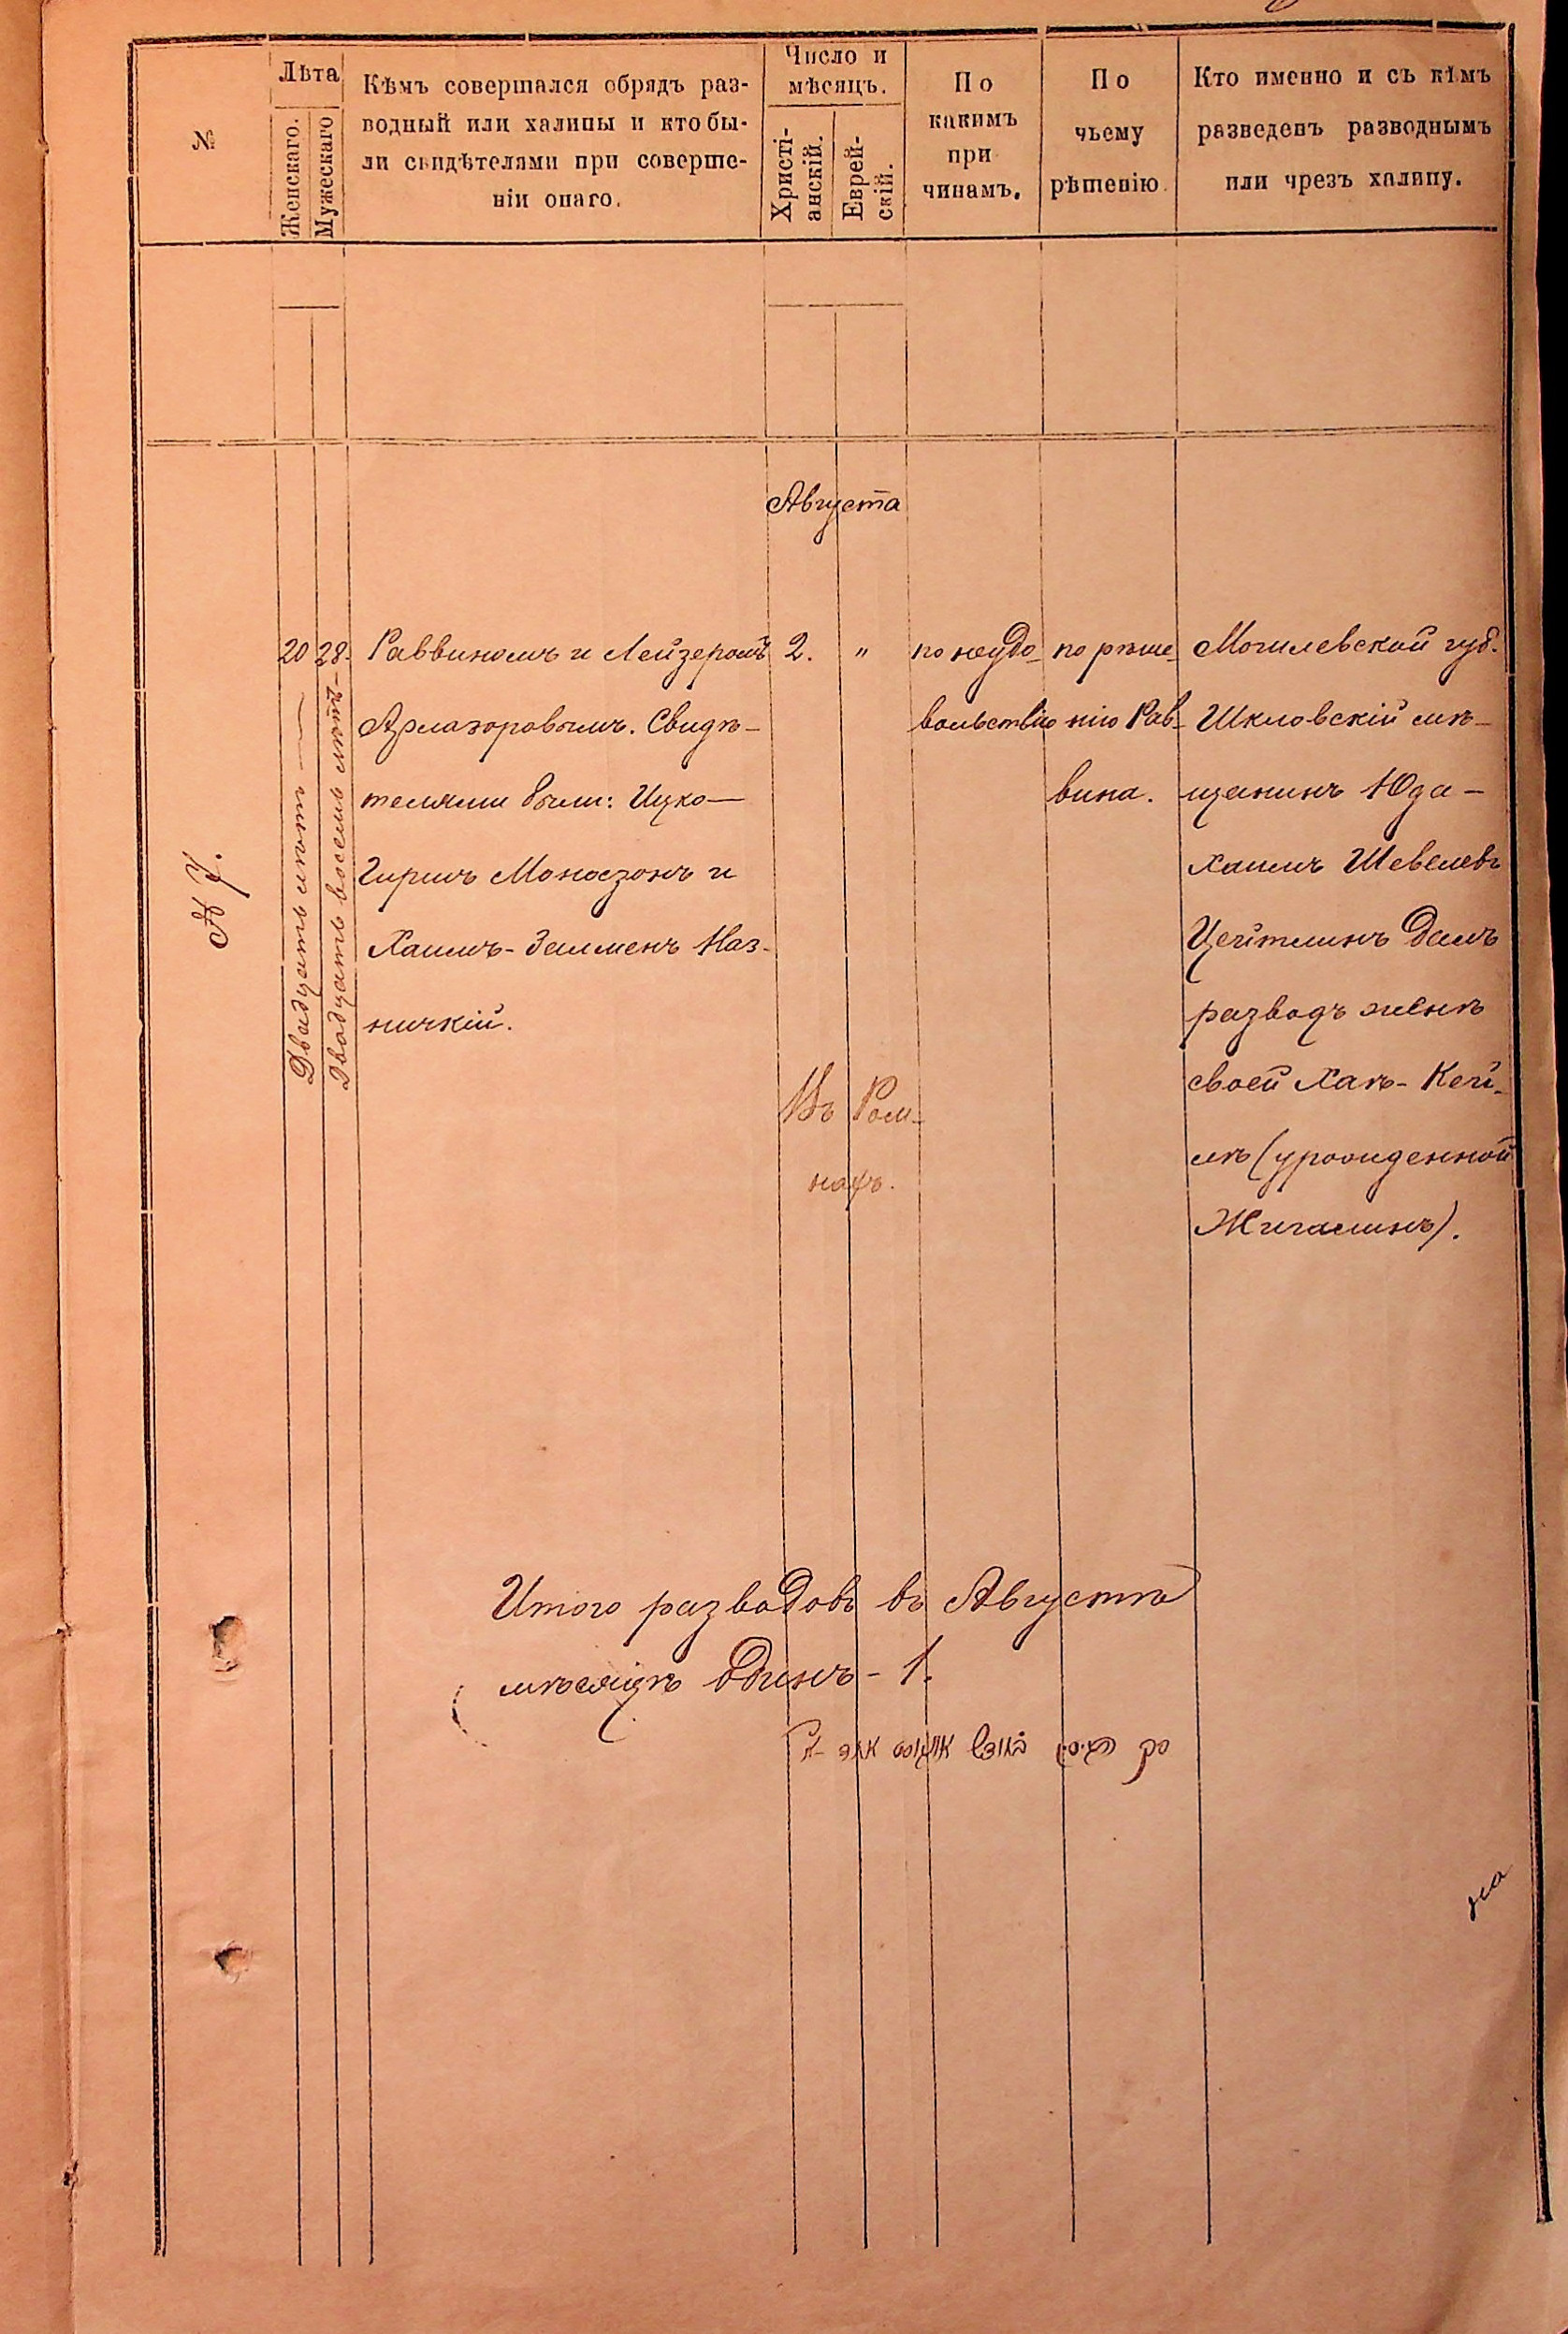 №
Лѣта
Женскаго.
Мужескаго
Кѣмъ совершался обрядъ раз-
водный или халицы и кто бы-
ли свидѣтелями при соверше-
ніи онаго.
Число и
мѣсяцъ.
Христі-
анскій.
Еврей-
скій.
По
какимъ
при
чинамъ.
По
чьему
рѣшенію.
Кто именно и съ кѣмъ
разведенъ разводнымъ
или чрезъ халицу.
Августа
№ 7.
20
Двадцать лѣтъ
28.
Двадцать восемь лѣтъ
Раввиномъ и Лейзеромъ
Арлазоровымъ. Свидѣ-
телями были: Ицко-
Гиршъ Моносзонъ и
Хаимъ-Залменъ Наз-
ничкій.
2.
"
Въ Ром-
нахъ.
по неудо-
вольствію
по рѣше-
нію Рав-
вина.
Могилевской губ.
Шкловскій мѣ-
щанинъ Юда-
Хаимъ Шевелевъ
Цейтлинъ далъ
разводъ женѣ
своей Хаѣ-Кей-
лѣ (урожденной
Жигалинъ).
Итого разводовъ въ Августѣ
мѣсяцѣ одинъ - 1.
на